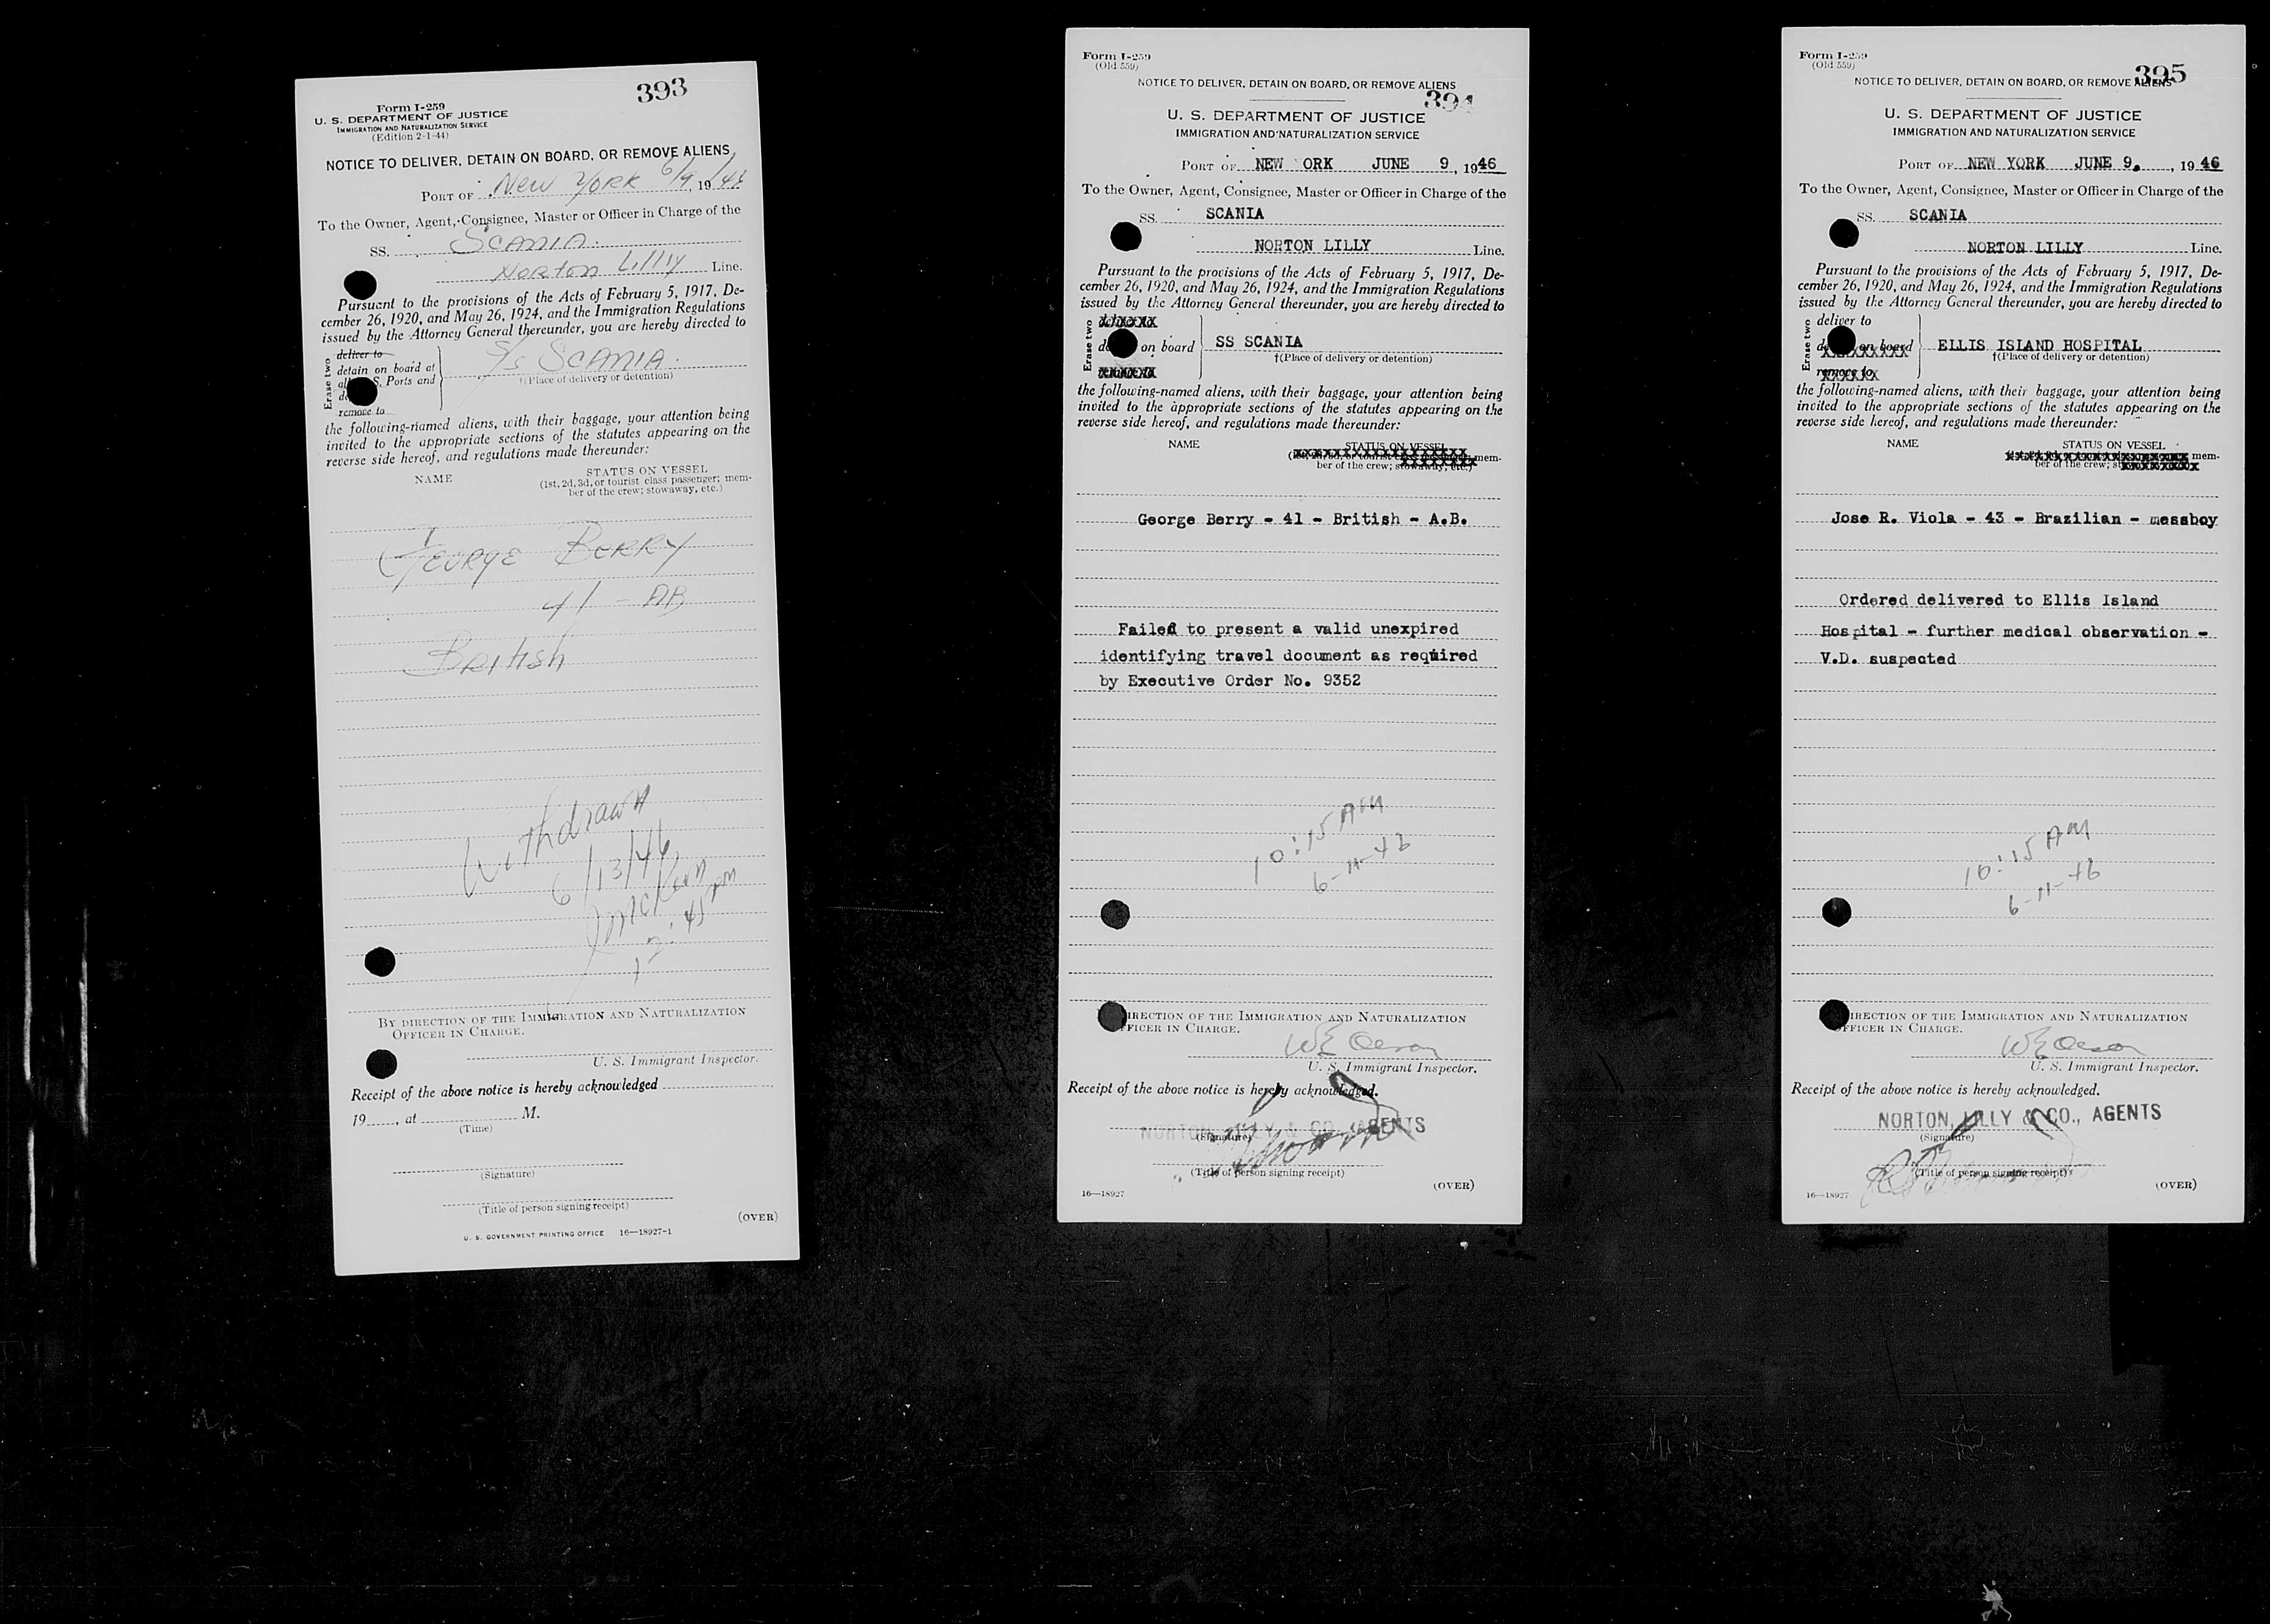 393
Form I-259
U. S. DEPARTMENT OF JUSTICE
IMMIGRATION AND NATURALIZATION SERVICE
(Edition 2-1-44)
NOTICE TO DELIVER, DETAIN ON BOARD, OR REMOVE ALIENS
PORT OF New York 6/9, 19 46
To the Owner, Agent, Consignee, Master or Officer in Charge of the
SS. SCANIA
Norton Lilly Line.
Pursuant to the provisions of the Acts of February 5, 1917, De-
cember 26, 1920, and May 26, 1924, and the Immigration Regulations
issued by the Attorney General thereunder, you are hereby directed to
Erase two
deliver to
detain on board at
S. Ports and
remove to
S/S SCANIA
†(Place of delivery or detention)
the following-named aliens, with their baggage, your attention being
invited to the appropriate sections of the statutes appearing on the
reverse side hereof, and regulations made thereunder:
NAME
STATUS ON VESSEL
(1st, 2d, 3d, or tourist class passenger; mem-
ber of the crew; stowaway, etc.)
GEORGE BERRY
41 - AB
British
Withdrawn
6/13/46
12:45 pm
BY DIRECTION OF THE IMMIGRATION AND NATURALIZATION
OFFICER IN CHARGE.
U. S. Immigrant Inspector.
Receipt of the above notice is hereby acknowledged
19____, at ____ M.
(Time)
(Signature)
(Title of person signing receipt)
(OVER)
U. S. GOVERNMENT PRINTING OFFICE 16—18927-1
Form I-259
(Old 559)
NOTICE TO DELIVER, DETAIN ON BOARD, OR REMOVE ALIENS
394
U. S. DEPARTMENT OF JUSTICE
IMMIGRATION AND NATURALIZATION SERVICE
PORT OF NEW ORK JUNE 9, 1946
To the Owner, Agent, Consignee, Master or Officer in Charge of the
SS. SCANIA
NORTON LILLY Line.
Pursuant to the provisions of the Acts of February 5, 1917, De-
cember 26, 1920, and May 26, 1924, and the Immigration Regulations
issued by the Attorney General thereunder, you are hereby directed to
Erase two
on board
SS SCANIA
†(Place of delivery or detention)
the following-named aliens, with their baggage, your attention being
invited to the appropriate sections of the statutes appearing on the
reverse side hereof, and regulations made thereunder:
NAME
STATUS ON VESSEL
mem-
ber of the crew;
George Berry - 41 - British - A.B.
Failed to present a valid unexpired
identifying travel document as required
by Executive Order No. 9352
10:15 AM
6-11-46
DIRECTION OF THE IMMIGRATION AND NATURALIZATION
OFFICER IN CHARGE.
U. S. Immigrant Inspector.
Receipt of the above notice is hereby acknowledged.
NORTON, LILLY & CO., AGENTS
(Signature)
(Title of person signing receipt)
16—18927
(OVER)
Form I-259
(Old 559)
395
NOTICE TO DELIVER, DETAIN ON BOARD, OR REMOVE ALIENS
U. S. DEPARTMENT OF JUSTICE
IMMIGRATION AND NATURALIZATION SERVICE
PORT OF NEW YORK JUNE 9, 1946
To the Owner, Agent, Consignee, Master or Officer in Charge of the
SS. SCANIA
NORTON LILLY Line.
Pursuant to the provisions of the Acts of February 5, 1917, De-
cember 26, 1920, and May 26, 1924, and the Immigration Regulations
issued by the Attorney General thereunder, you are hereby directed to
Erase two
deliver to
on board
remove to
ELLIS ISLAND HOSPITAL
†(Place of delivery or detention)
the following-named aliens, with their baggage, your attention being
invited to the appropriate sections of the statutes appearing on the
reverse side hereof, and regulations made thereunder:
NAME
STATUS ON VESSEL
mem-
ber of the crew;
Jose R. Viola - 43 - Brazilian - messboy
Ordered delivered to Ellis Island
Hospital - further medical observation -
V.D. suspected
10:15 AM
6-11-46
DIRECTION OF THE IMMIGRATION AND NATURALIZATION
OFFICER IN CHARGE.
U. S. Immigrant Inspector.
Receipt of the above notice is hereby acknowledged.
NORTON, LILLY & CO., AGENTS
(Signature)
(Title of person signing receipt)
16—18927
(OVER)